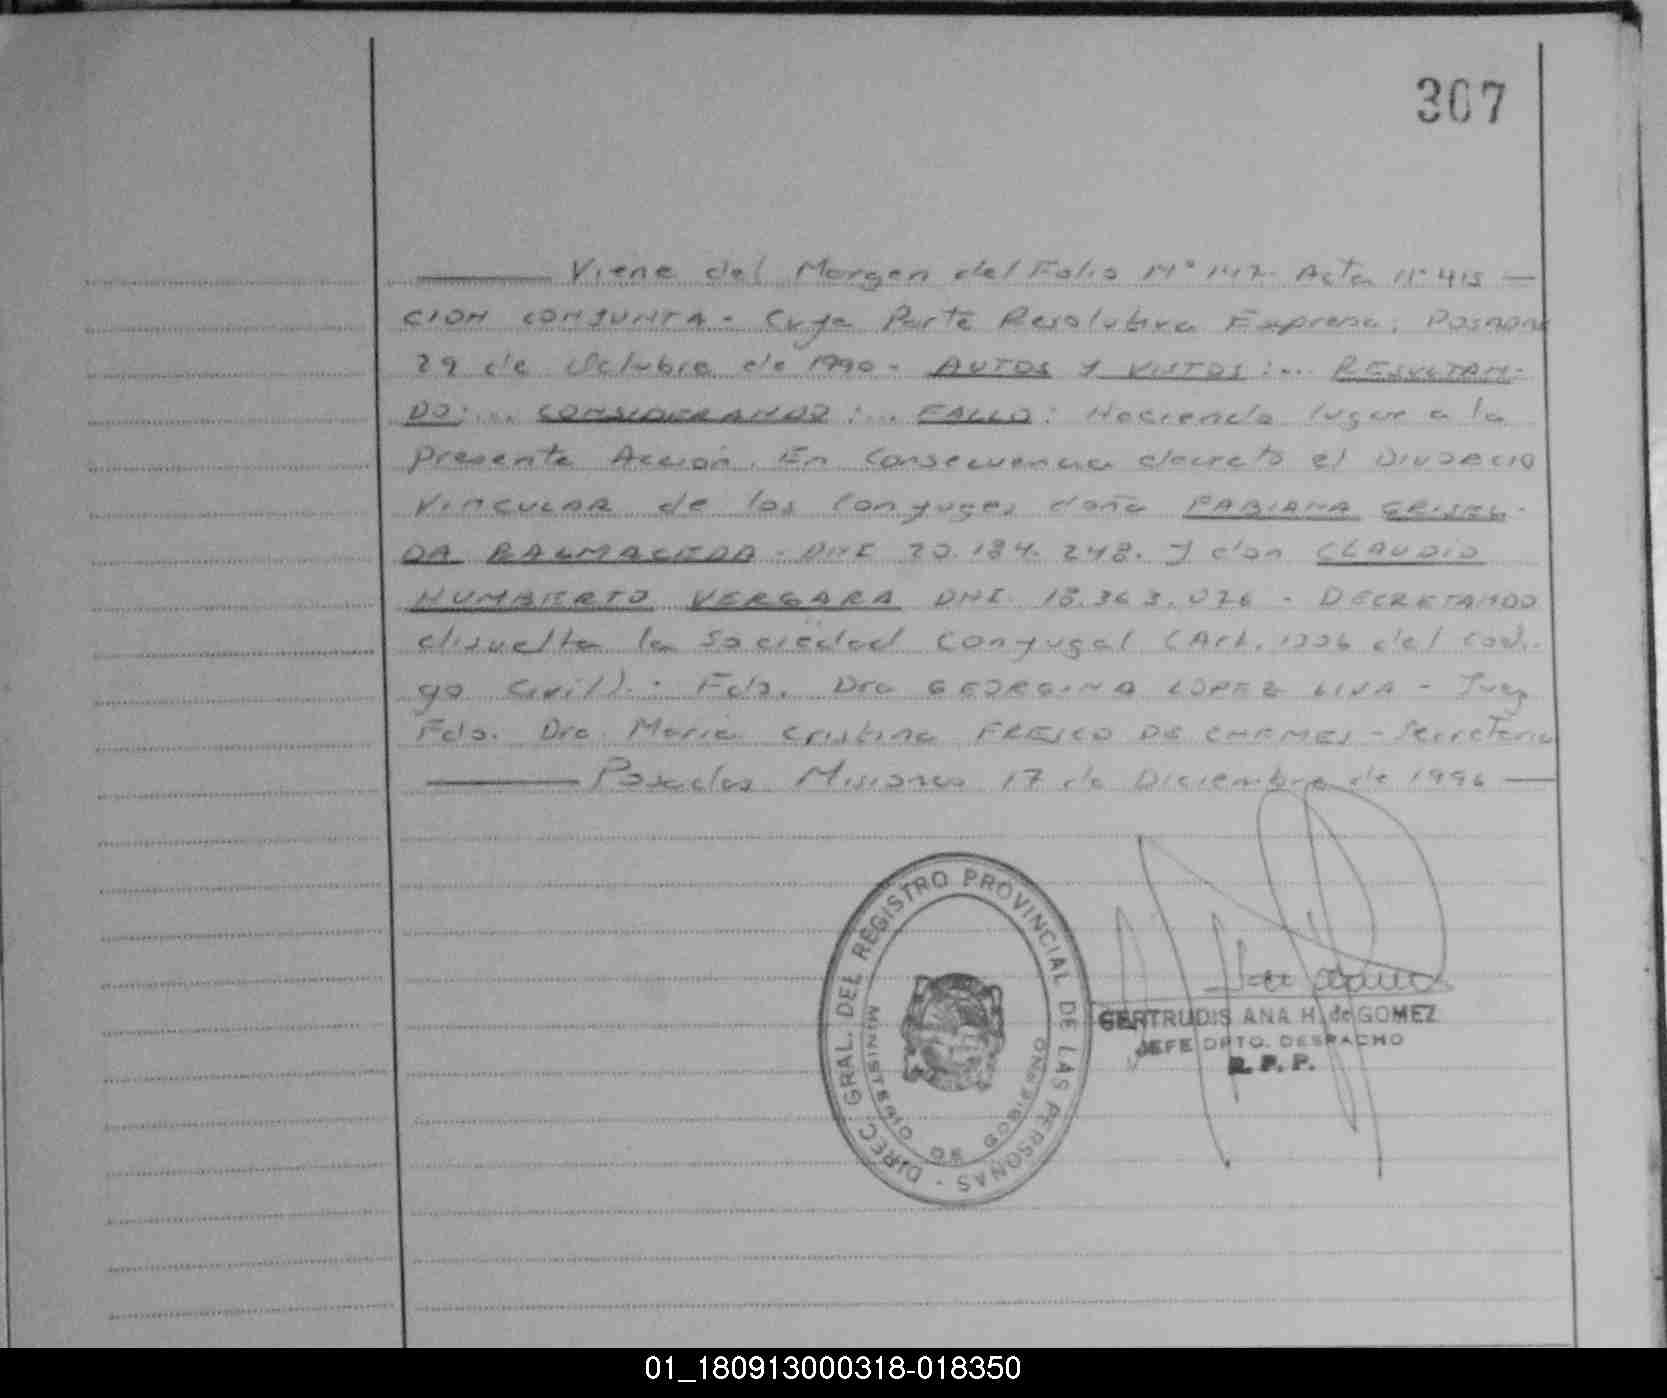 307
Viene del Margen del Folio Nº 147. Acta Nº 415
CION CONJUNTA - Cuya Parte Resolutiva Expresa: Posadas
29 de Octubre de 1990 - AUTOS Y VISTOS:... RESULTAN-
DO:... CONSIDERANDO:... FALLO: Haciendo lugar a la
presente Acción. En Consecuencia decreto el DIVORCIO
VINCULAR de los Conyuges doña FABIANA GRISEL-
DA BALMACEDA - DNI 20.184.248. y don CLAUDIO
HUMBERTO VERGARA DNI 18.363.026 - DECRETANDO
disuelta la Sociedad Conyugal (Art. 1306 del Codi-
go Civil). - Fdo. Dra GEORGINA LOPEZ LIVA - Juez
Fdo. Dra. Maria Cristina FRESCO DE CHEMES - Secretaria
Posadas Misiones 17 de Diciembre de 1996
DIREC. GRAL. DEL REGISTRO PROVINCIAL DE LAS PERSONAS -
MINISTERIO DE GOBIERNO
GERTRUDIS ANA H. de GOMEZ
JEFE DPTO. DESPACHO
R. P. P.
01_180913000318-018350